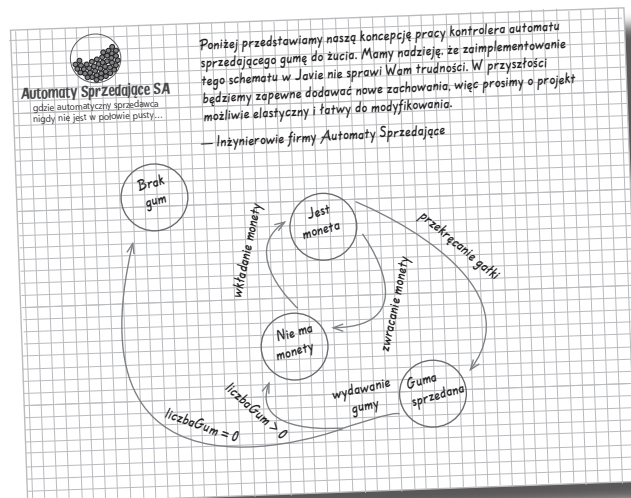 Automaty Sprzedające SA
gdzie automatyczny sprzedawca
nigdy nie jest w połowie pusty...
Poniżej przedstawiamy naszą koncepcję pracy kontrolera automatu
sprzedającego gumę do żucia. Mamy nadzieję, że zaimplementowanie
tego schematu w Javie nie sprawi Wam trudności. W przyszłości
będziemy zapewne dodawać nowe zachowania, więc prosimy o projekt
możliwie elastyczny i łatwy do modyfikowania.
— Inżynierowie firmy Automaty Sprzedające
Brak
gum
Jest
moneta
wkładanie monety
przekręcanie gałki
zwracanie monety
Nie ma
monety
Guma
sprzedana
wydawanie
gumy
liczbaGum > 0
liczbaGum = 0